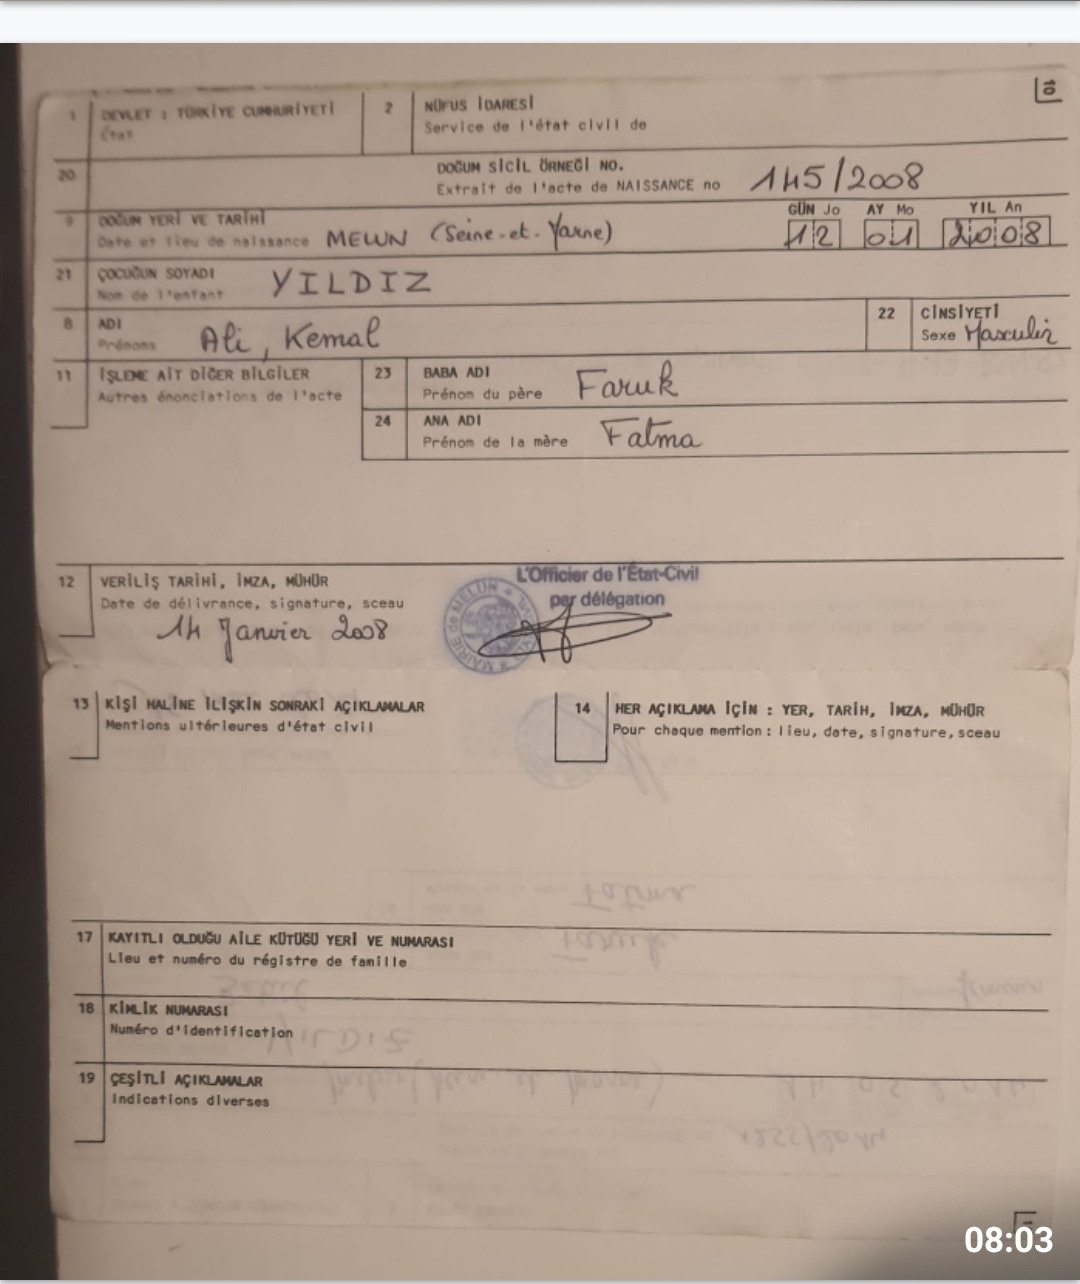 10
1 DEVLET : TÜRKİYE CUMHURİYETİ
État
2 NÜFUS İDARESİ
Service de l'état civil de
20 DOĞUM SİCİL ÖRNEĞİ NO.
Extrait de l'acte de NAISSANCE no 145/2008
9 DOĞUM YERİ VE TARİHİ GÜN Jo AY Mo YIL An
Date et lieu de naissance MELUN (Seine-et-Marne) 12 01 2008
21 ÇOCUĞUN SOYADI
Nom de l'enfant YILDIZ
8 ADI
Prénoms Ali, Kemal
22 CİNSİYETİ
Sexe Masculin
11 İŞLEME AİT DİĞER BİLGİLER
Autres énonciations de l'acte
23 BABA ADI
Prénom du père Faruk
24 ANA ADI
Prénom de la mère Fatma
12 VERİLİŞ TARİHİ, İMZA, MÜHÜR
Date de délivrance, signature, sceau
14 Janvier 2008
L'Officier de l'État-Civil
par délégation
MAIRIE de MELUN
13 KİŞİ HALİNE İLİŞKİN SONRAKİ AÇIKLAMALAR
Mentions ultérieures d'état civil
14 HER AÇIKLAMA İÇİN : YER, TARİH, İMZA, MÜHÜR
Pour chaque mention : lieu, date, signature, sceau
17 KAYITLI OLDUĞU AİLE KÜTÜĞÜ YERİ VE NUMARASI
Lieu et numéro du régistre de famille
18 KİMLİK NUMARASI
Numéro d'identification
19 ÇEŞİTLİ AÇIKLAMALAR
Indications diverses
08:03